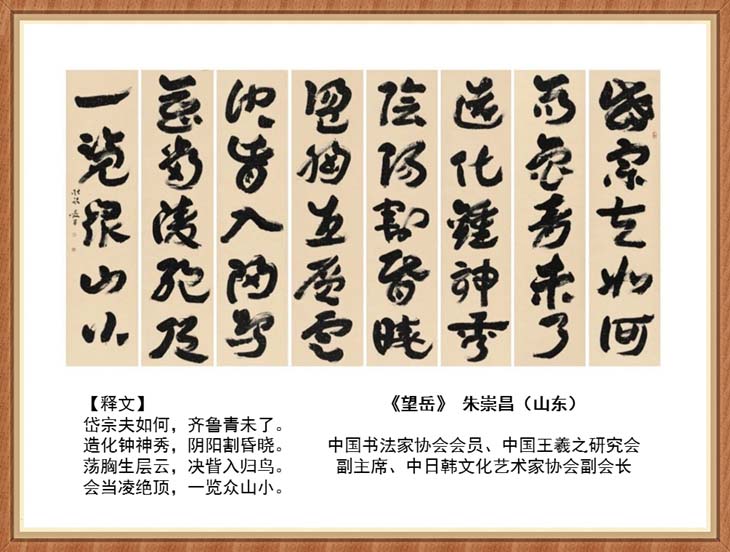 岱宗夫如何
齊魯青未了
造化鍾神秀
陰陽割昏曉
盪胸生層雲
決眥入歸鳥
會當凌絕頂
一覽眾山小
【释文】
岱宗夫如何，齐鲁青未了。
造化钟神秀，阴阳割昏晓。
荡胸生层云，决眥入归鸟。
会当凌绝顶，一览众山小。
《望岳》 朱崇昌（山东）
中国书法家协会会员、中国王羲之研究会
副主席、中日韩文化艺术家协会副会长